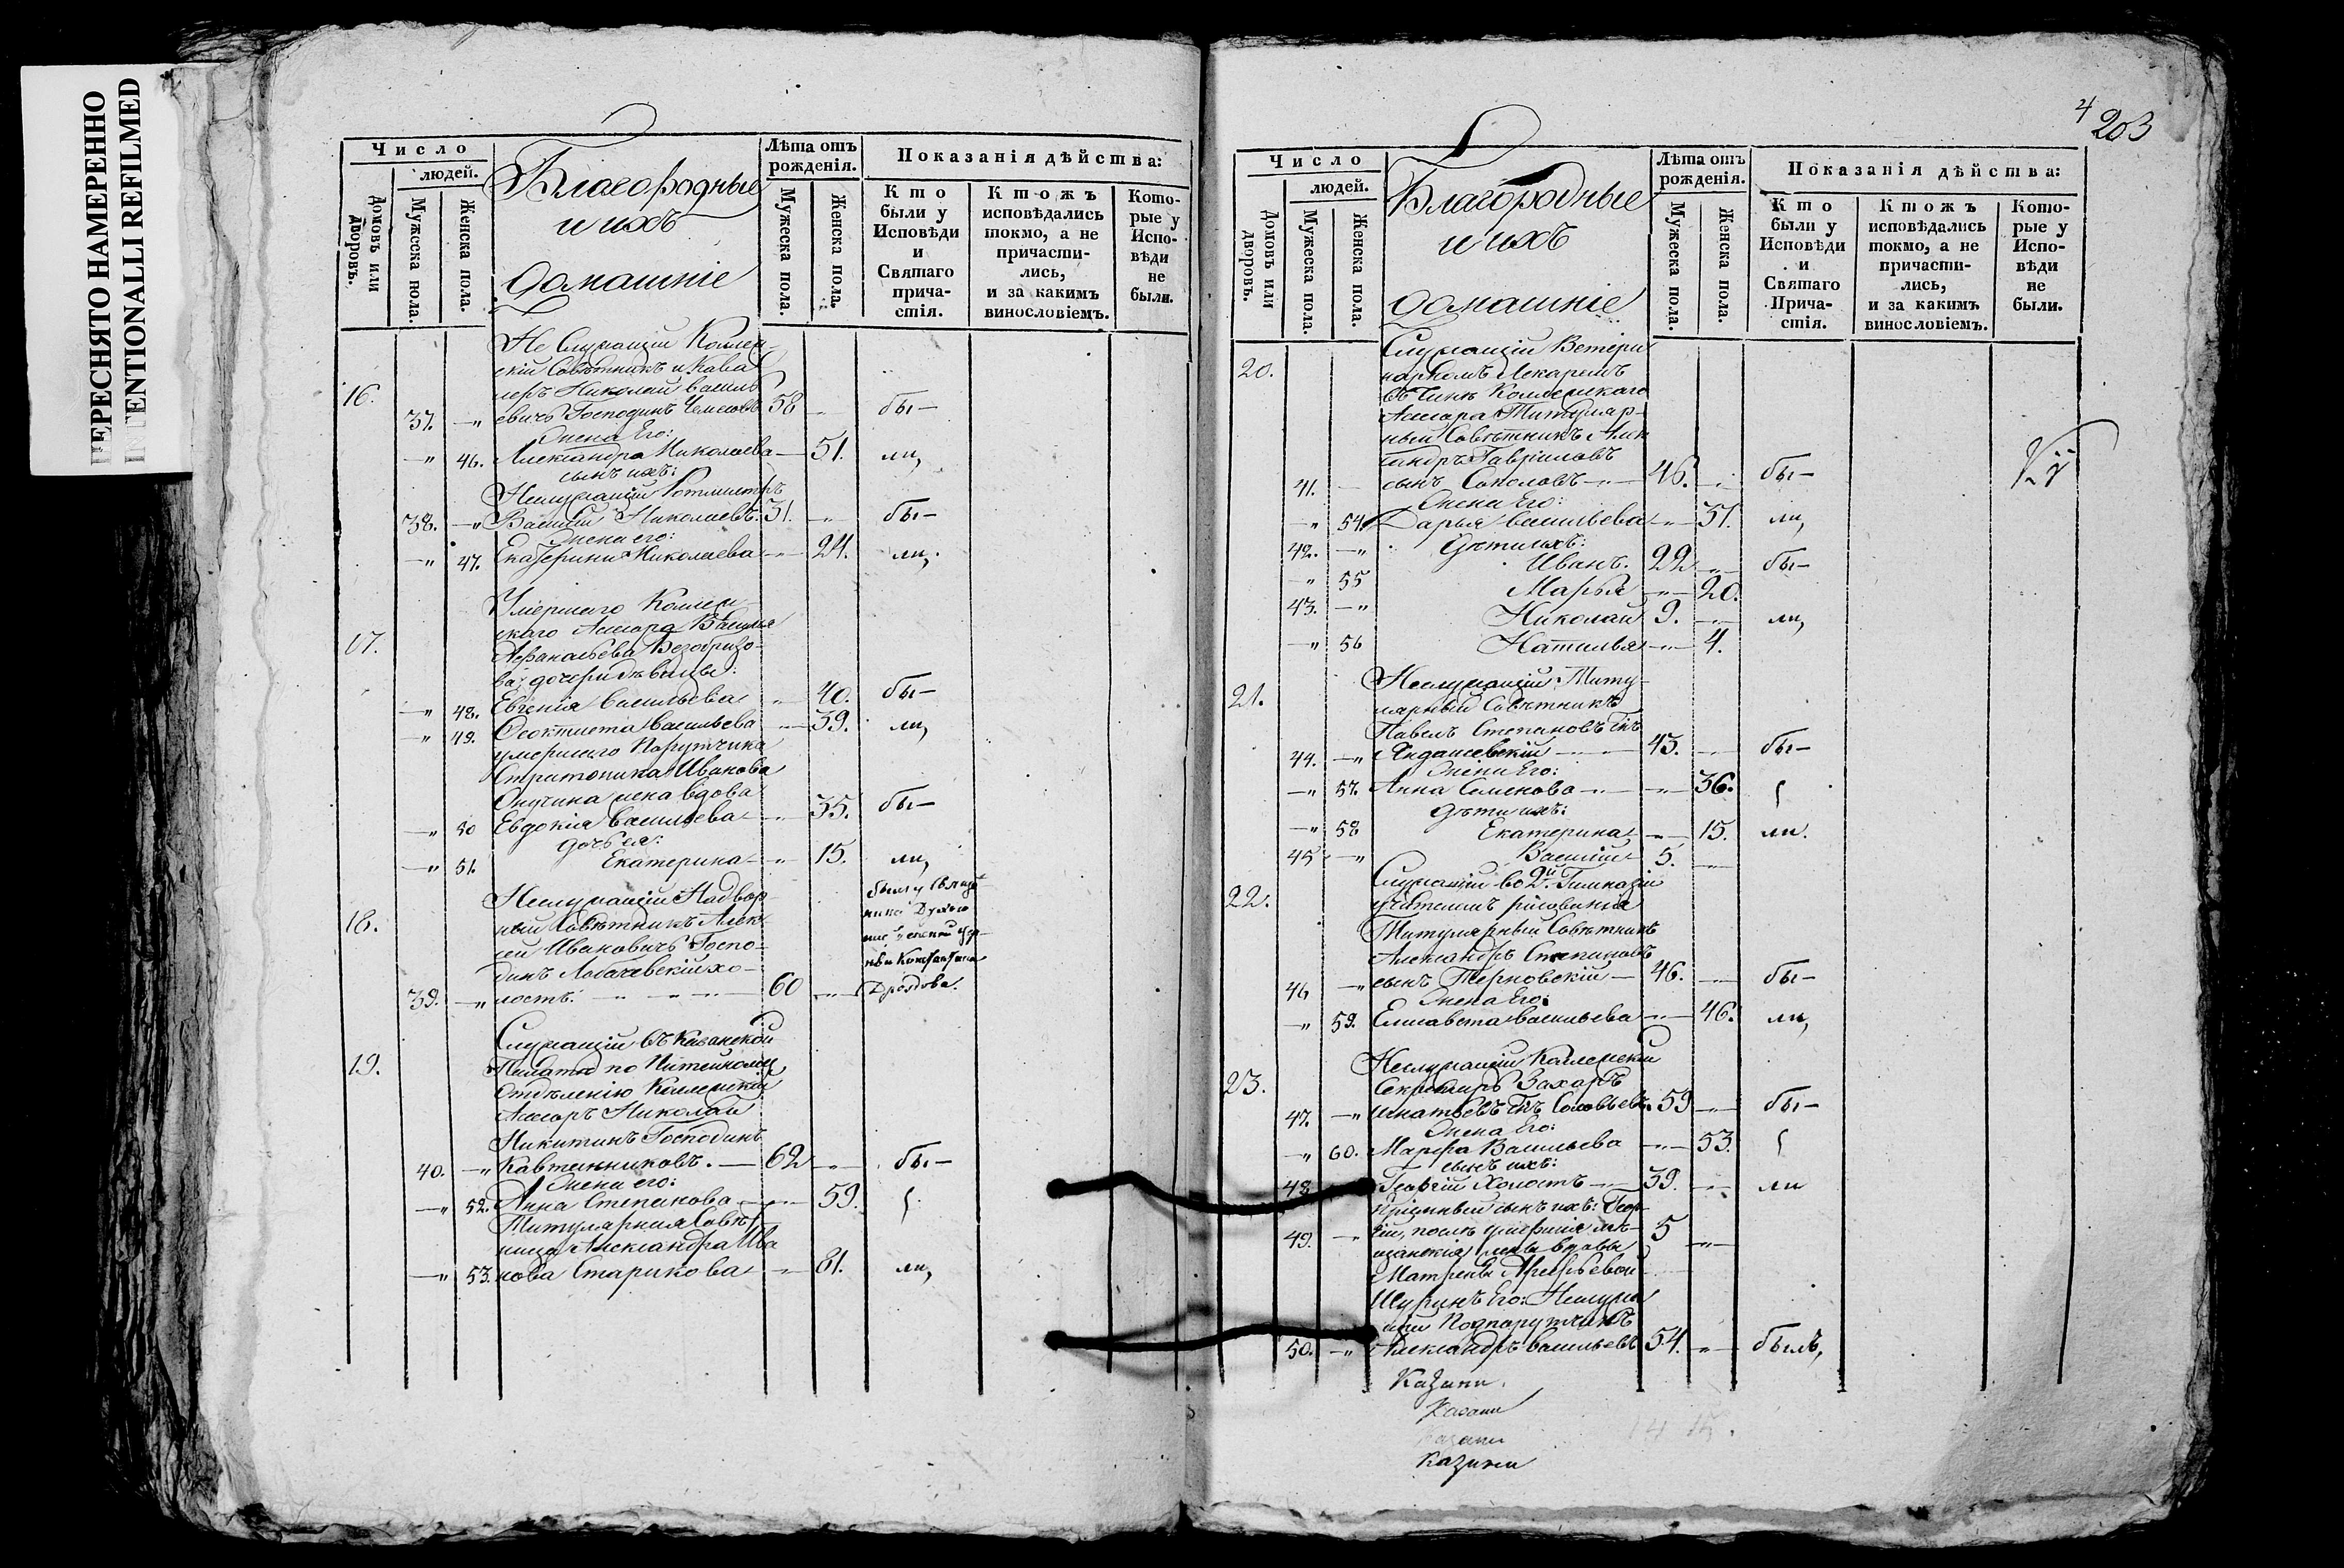 ПЕРЕСНЯТО НАМЕРЕННО
INTENTIONALLI REFILMED
Число
людей.
Домовъ или дворовъ.
Мужеска пола.
Женска пола.
Благородные
и ихъ
домашніе
Лѣта отъ рожденія.
Мужеска пола.
Женска пола.
Показанія дѣйства:
Кто были у Исповѣди и Святаго причастія.
Ктожъ исповѣдались токмо, а не причастились, и за какимъ винословіемъ.
Которые у Исповѣди не были.
Не Служащій Коллеж-
скій Совѣтникъ и Кава
16. леръ Николай Василь
37. —„ евичь Господинъ 58 бы—
Жена Его:
—„ 46. Александра Николаева — 51. ли,
сынъ ихъ:
Неслужащій Ротмистръ
38. —„ Василій Николаевъ. 31. бы—
Жена его:
—„ 47. Екатерина Николаева — 24. ли,
Умершаго Коллеж-
скаго Ассесора Василья
17. Афанасьева Безобразо-
ва: дочери дѣвицы:
—„ 48. Евгенія Васильева 40. бы—
—„ 49. Феоктиста Васильева 39. ли,
умершаго Порутчика
Стратоника Иванова
жена вдова
—„ 50 Евдокія Васильева 35. бы—
дочь ея:
—„ 51. Екатерина 15. ли,
Неслужащій Надвор-
18. ный Совѣтникъ Алек-
сей Ивановичь Госпо-
динъ Лобачевскій хо-
39. —„ лостъ. 60
былъ у Свяще
ника
Константина
Дроздова.
Служащій въ Казанской
19. Палатѣ по Питейному
Отдѣленію Коллежскій
Ассесоръ Николай
Никитинъ Господинъ
40. —„ Кавтанниковъ. — 62 бы—
Жена его:
—„ 52. Анна Степанова 59.
Титулярная Совѣт
ница Александра Ива
—„ 53. нова Старикова 81. ли,
4 203
Число
людей.
Домовъ или дворовъ.
Мужеска пола.
Женска пола.
Благородные
и ихъ
домашніе
Лѣта отъ рожденія.
Мужеска пола.
Женска пола.
Показанія дѣйства:
Кто были у Исповѣди и Святаго Причастія.
Ктожъ исповѣдались токмо, а не причастились, и за какимъ винословіемъ.
Которые у Исповѣди не были.
20. Служащій Ветери
нарнымъ Лекаремъ
въ Чинѣ Коллежскаго
Ассесора Титуляр-
ный Совѣтникъ Алек
сандръ Гавриловъ
41. — сынъ Соколовъ 46. бы—
Жена Его:
—„ 54 Дарья Васильева 37. ли,
дѣти ихъ:
42. —„ Иванъ. 22 бы—
—„ 55 Марья 20.
43. —„ Николай 9. ли,
—„ 56 Наталья 4.
Неслужащій Титу-
21. лярный Совѣтникъ
Павелъ Степановъ Гнъ
44. —„ Яндашевскій 43. бы—
Жена Его:
—„ 57. Анна Семенова 36.
дѣти ихъ:
—„ 58 Екатерина 15. ли.
45 —„ Василій 5.
Служащій во 2й Гимназіи
22. учителемъ рисованія
Титулярный Совѣтникъ
Александръ Степановъ
46 —„ сынъ Терновскій 46. бы—
Жена Его:
—„ 59. Елисавета Васильева 46. ли,
Неслужащій Коллежскій
23. Секретарь Захаръ
47. —„ Игнатьевъ Гнъ Соловьевъ. 59 бы—
Жена Его:
—„ 60. Марфа Васильева 53.
сынъ ихъ:
48 Георгій Холостъ 39. ли
Пріемный сынъ ихъ: Геор-
49. —„ гій, послѣ умершія мѣ- 5
щанскія жены вдовы
Матрены Арефьевой
Шуринъ Его: Неслужа
щій Подпорутчикъ
50. —„ Александръ Васильевъ 54. былъ,
Казани.
Казани
Казани
Казани